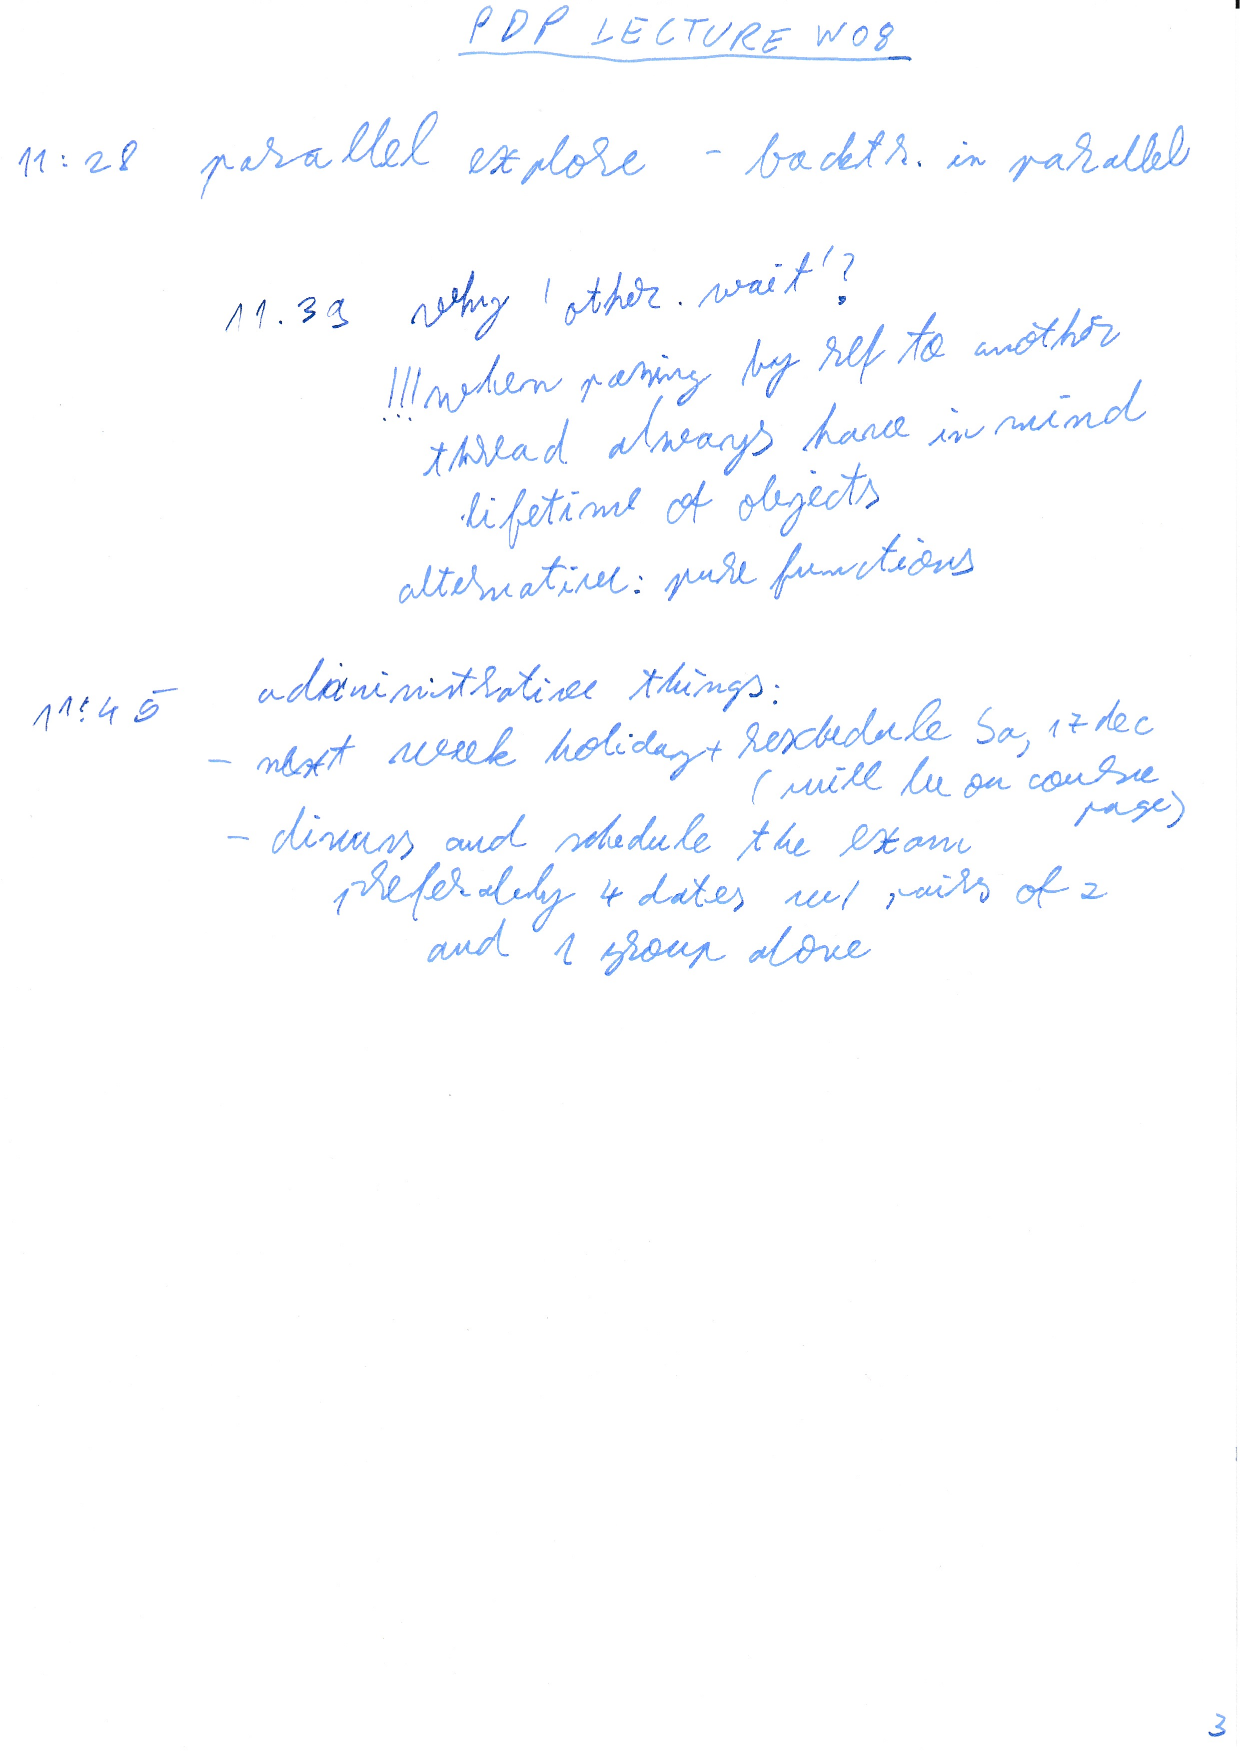 PDP LECTURE W08
11:28 parallel explore - backtr. in parallel
11.39 why 'other.wait'?
!!! when passing by ref to another
thread always have in mind
lifetime of objects
alternative: pure functions
11:45 administrative things:
- next week holiday + reschedule Sa, 17 dec
(will be on course
page)
- discuss and schedule the exam
preferably 4 dates w/ pairs of 2
and 1 group alone
3